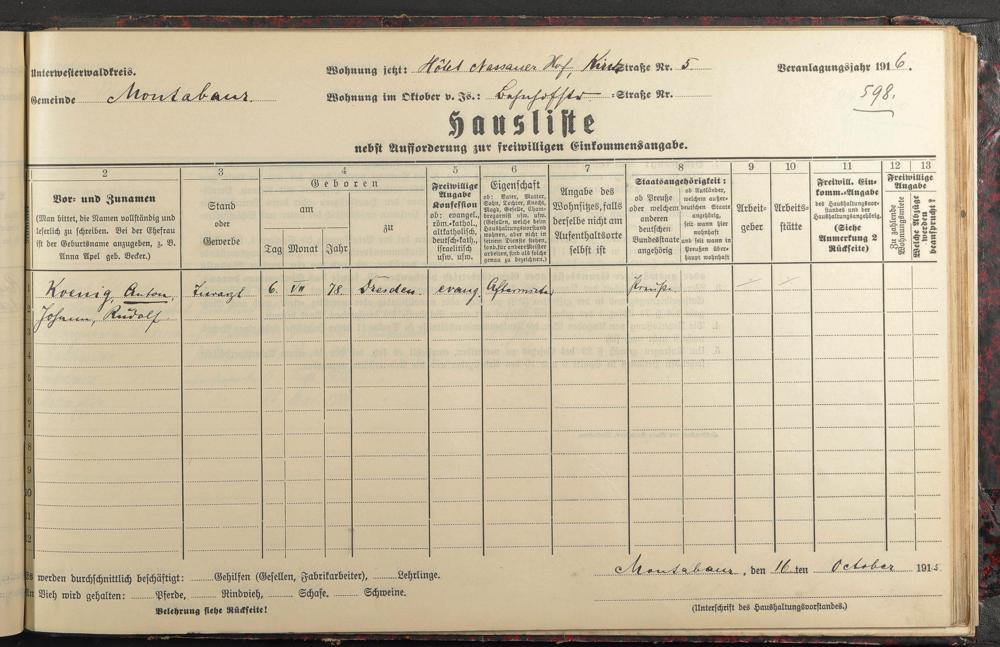 Unterwesterwaldkreis.
Wohnung jetzt: Hôtel Nassauer Hof, Straße Nr. 5
Veranlagungsjahr 1916.
Gemeinde Montabaur.
Wohnung im Oktober v. Js.: Bahnhofstr -Straße Nr.
598.
Hausliste
nebst Aufforderung zur freiwilligen Einkommensangabe.
2 3 4 5 6 7 8 9 10 11 12 13
Vor- und Zunamen
(Man bittet, die Namen vollständig und
leserlich zu schreiben. Bei der Ehefrau
ist der Geburtsname anzugeben, z. B.
Anna Apel geb. Becker.)
Stand
oder
Gewerbe
Geboren
am
Tag Monat Jahr
zu
Freiwillige
Angabe
Konfession
ob: evangel.,
röm.-kathol.,
altkatholisch,
deutsch-kath.,
israelitisch
usw. usw.
Eigenschaft
ob: Vater, Mutter,
Sohn, Tochter, Knecht,
Magd, Geselle, Cham-
bregarnist usw. usw.
(Gesellen, welche beim
Haushaltungsvorstand
wohnen, aber nicht in
seinem Dienste stehen,
sond. für andere Meister
arbeiten, sind als solche
genau zu bezeichnen.)
Angabe des
Wohnsitzes, falls
derselbe nicht am
Aufenthaltsorte
selbst ist
Staatsangehörigkeit:
ob Preuße
oder welchem
anderen
deutschen
Bundesstaate
angehörig
ob Ausländer,
welchem außer-
deutschen Staate
angehörig,
seit wann hier
wohnhaft
und seit wann in
Preußen über-
haupt wohnhaft
Arbeit-
geber
Arbeits-
stätte
Freiwill. Ein-
komm.-Angabe
des Haushaltungsvor-
standes und der
Haushaltungsangehörig.
(Siehe
Anmerkung 2
Rückseite)
Freiwillige
Angabe
Zu zahlende
Wohnungsmiete
Welche Abzüge
werden
beansprucht?
1 Koenig, Anton, Tierarzt 6. VII 78. Dresden. evang. Aftermieter Preuße. — —
2 Johann, Rudolf.
3
4
5
6
7
8
9
10
11
12
Es werden durchschnittlich beschäftigt: Gehilfen (Gesellen, Fabrikarbeiter), Lehrlinge.
An Vieh wird gehalten: Pferde, Rindvieh, Schafe. Schweine.
Belehrung siehe Rückseite!
Montabaur, den 16 ten October 1915.
(Unterschrift des Haushaltungsvorstandes.)